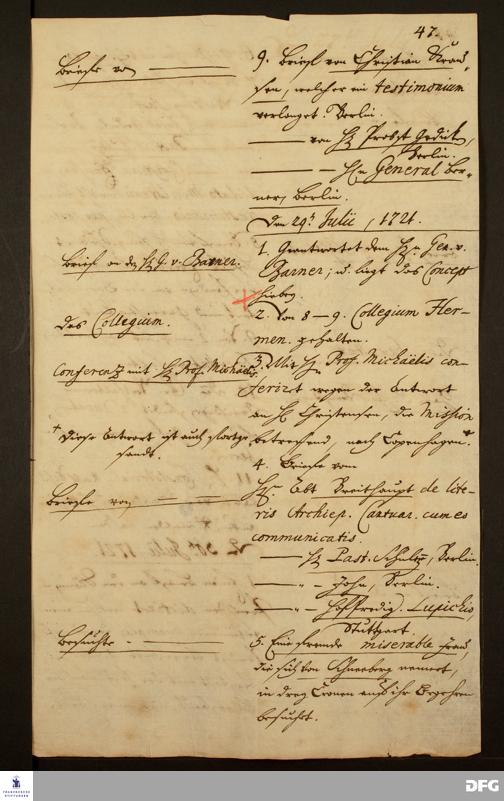 47.
Briefe von
9. Brief von Christian Krau-
sen, welcher ein testimonium
verlanget. Berlin.
von H. Probst Gedicke,
Berlin.
H. General
ner, Berlin.
Den 29. Julii, 1721.
Brief an den H. G. v. Barner.
1. Geantwortet dem H. Gen. v.
Barner; u. liegt das Concept
hiebey.
Das Collegium.
2. Von 8 – 9. Collegium Her-
men. gehalten.
Conferentz mit H. Prof. Michaelis
3. Mit H. Prof. Michaelis con-
feriret wegen der Antwort
an H. Christensen, die Mission
betreffend, nach Copenhagen. +
+ Diese Antwort ist auch fortge-
sandt.
4. Briefe vom
Briefe von
H. Abt Breithaupt de lite-
ris Archiep. Cantuar. cum eo
communicatis.
H. Past. Schultz, Berlin.
John, Berlin.
Hoffpredig. Lupichio,
Stuttgart.
Besuchte
5. Eine fremde miserable Frau,
die sich von Schneeberg nennet,
in drey Cronen auf ihr Begehren
besucht.
FRANCKESCHE
STIFTUNGEN
DFG